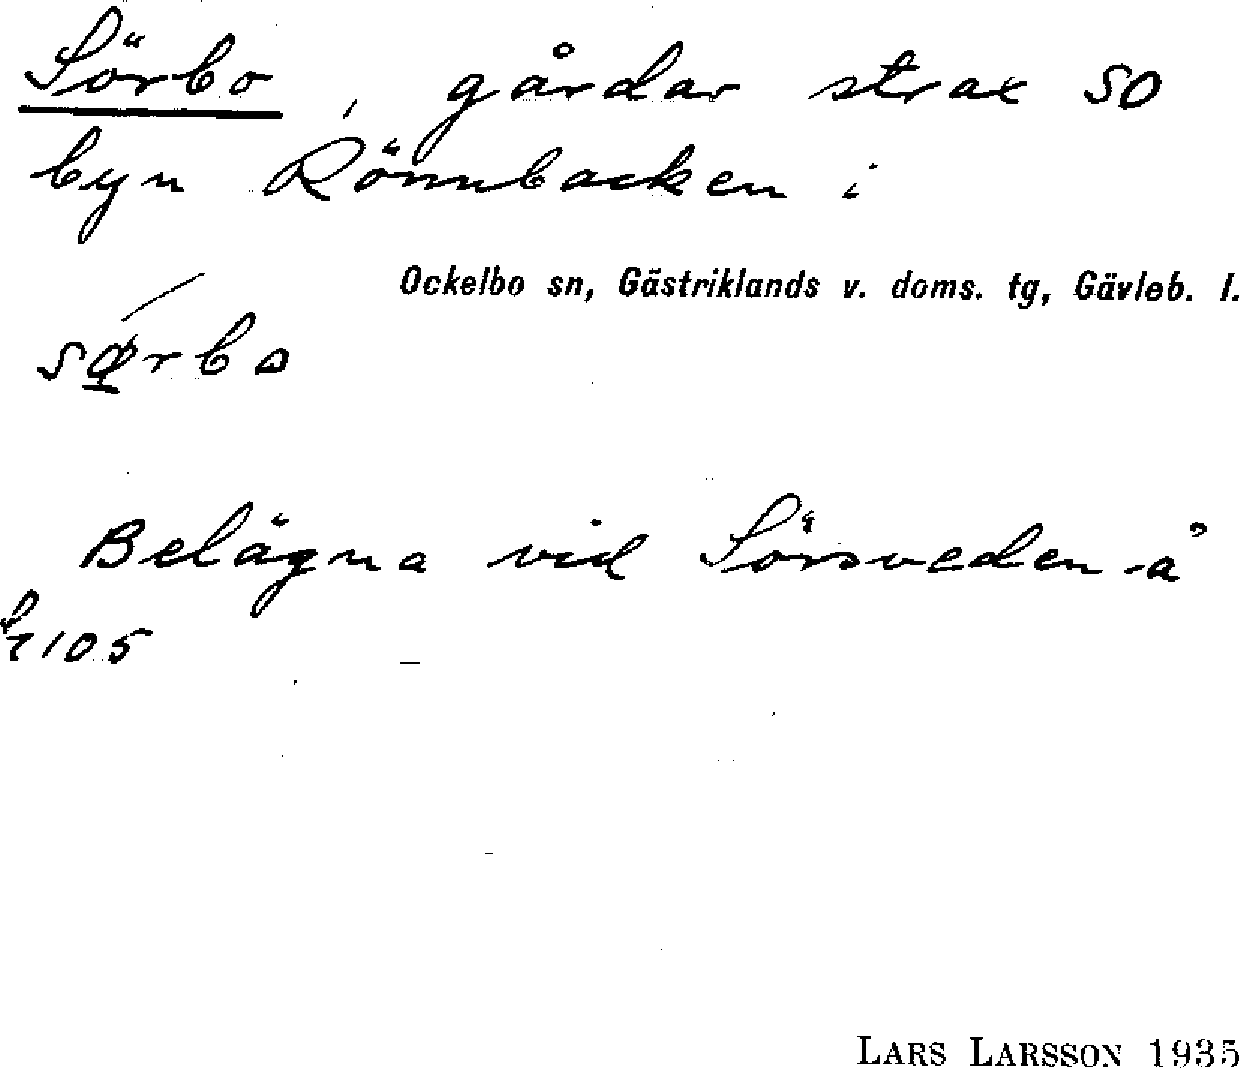 Sörbo, gårdar strax SO
byn Rönnbacken i
Ockelbo sn, Gästriklands v. doms. tg, Gävleb. l.
Belägna vid Sörsveden-å
105
LARS LARSSON 1935